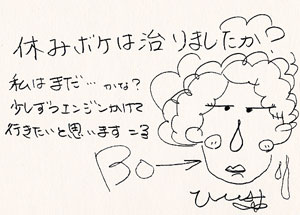 休みボケは治りましたか?
私はまだ…かな?
少しずつエンジンかけて
行きたいと思います
Bo→